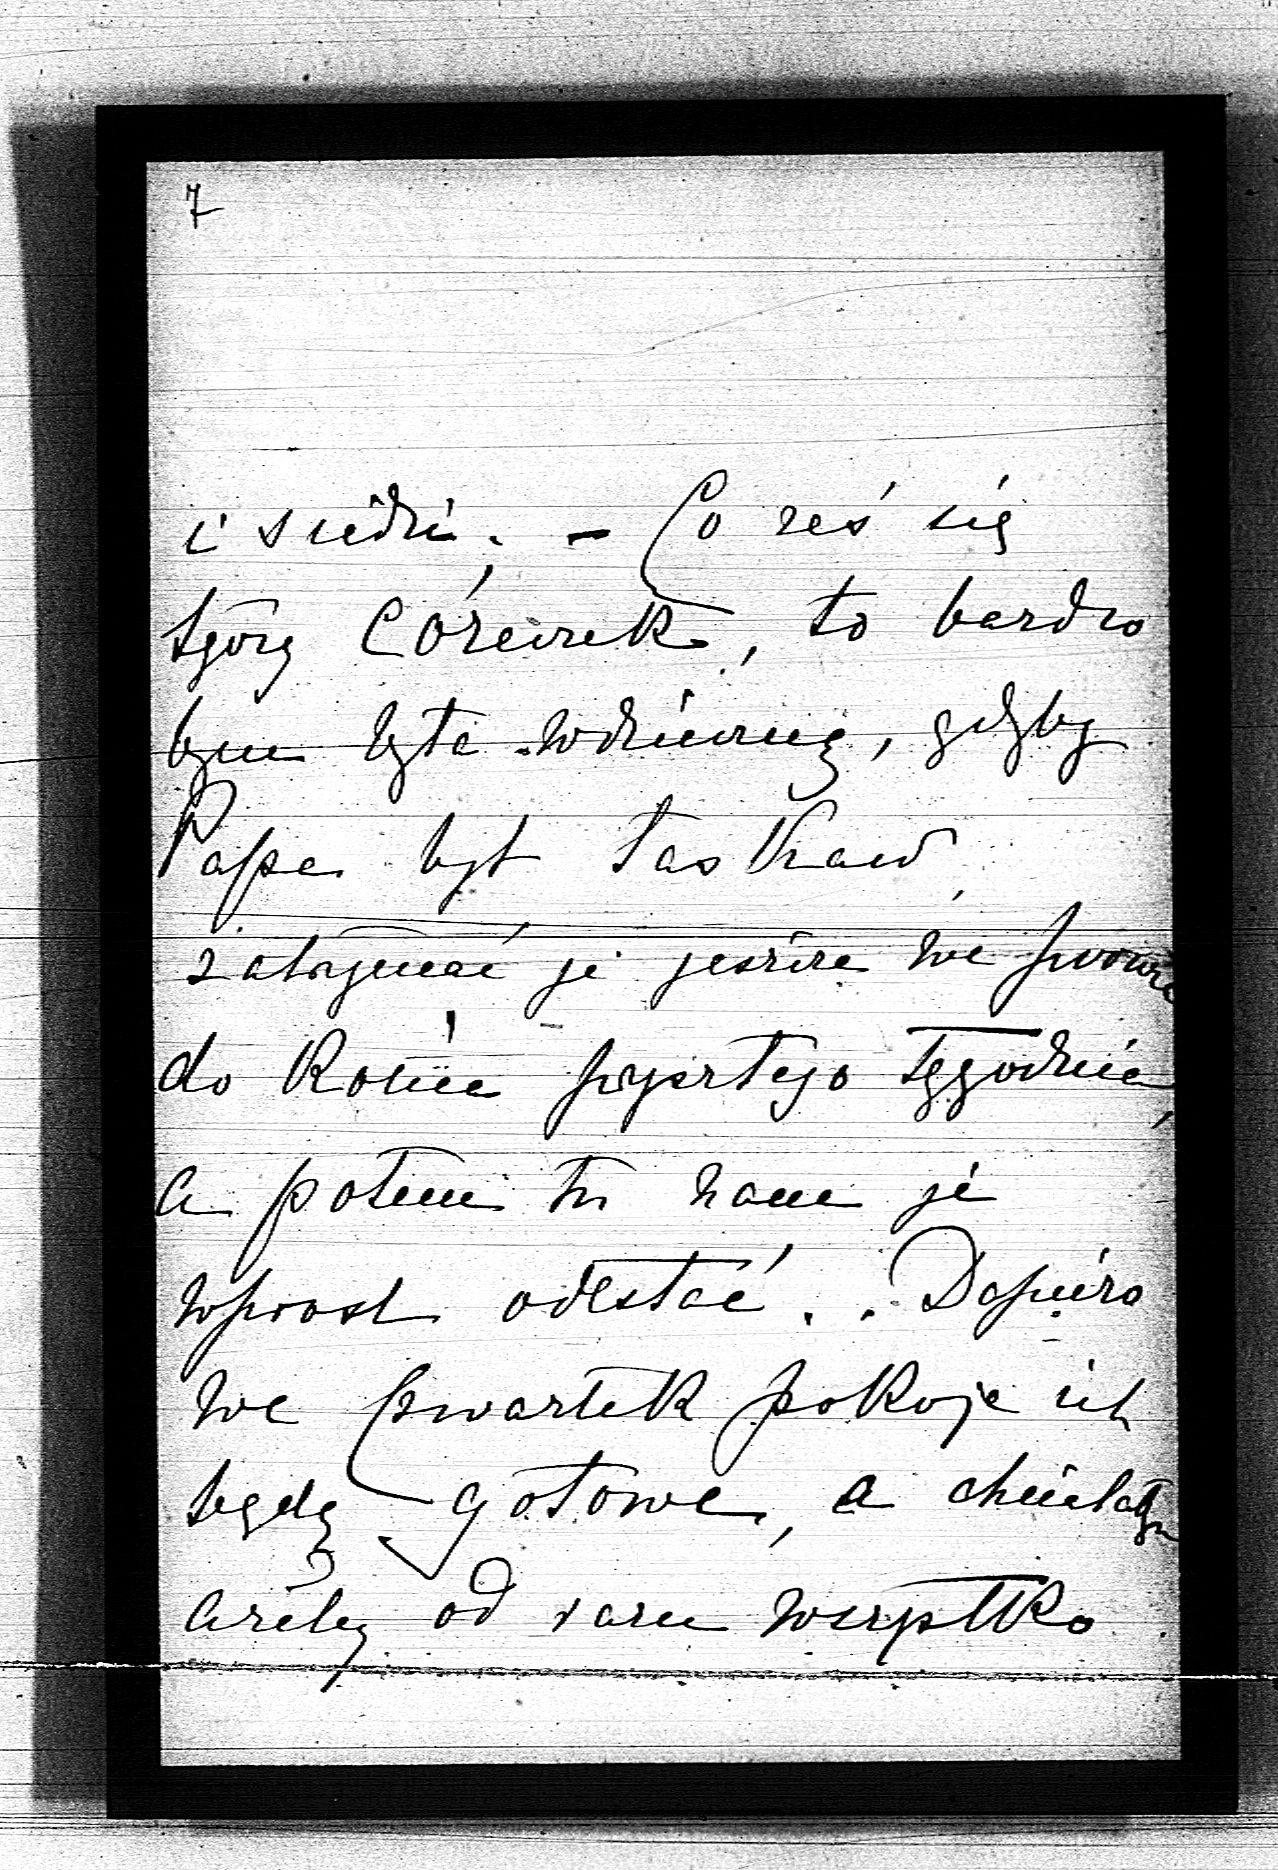 7
i siedzi. - Co zaś się
tyczy Córeczek, to bardzo
bym była wdzięczną, gdyby
Papa był łaskaw
zatrzymać je jeszcze we
do końca przyszłego tygodnia,
a potem tu nam je
wprost odesłać. . Dopiero
we czwartek pokoje ich
będą gotowe, a chciałabym
ażeby od razu wszystko